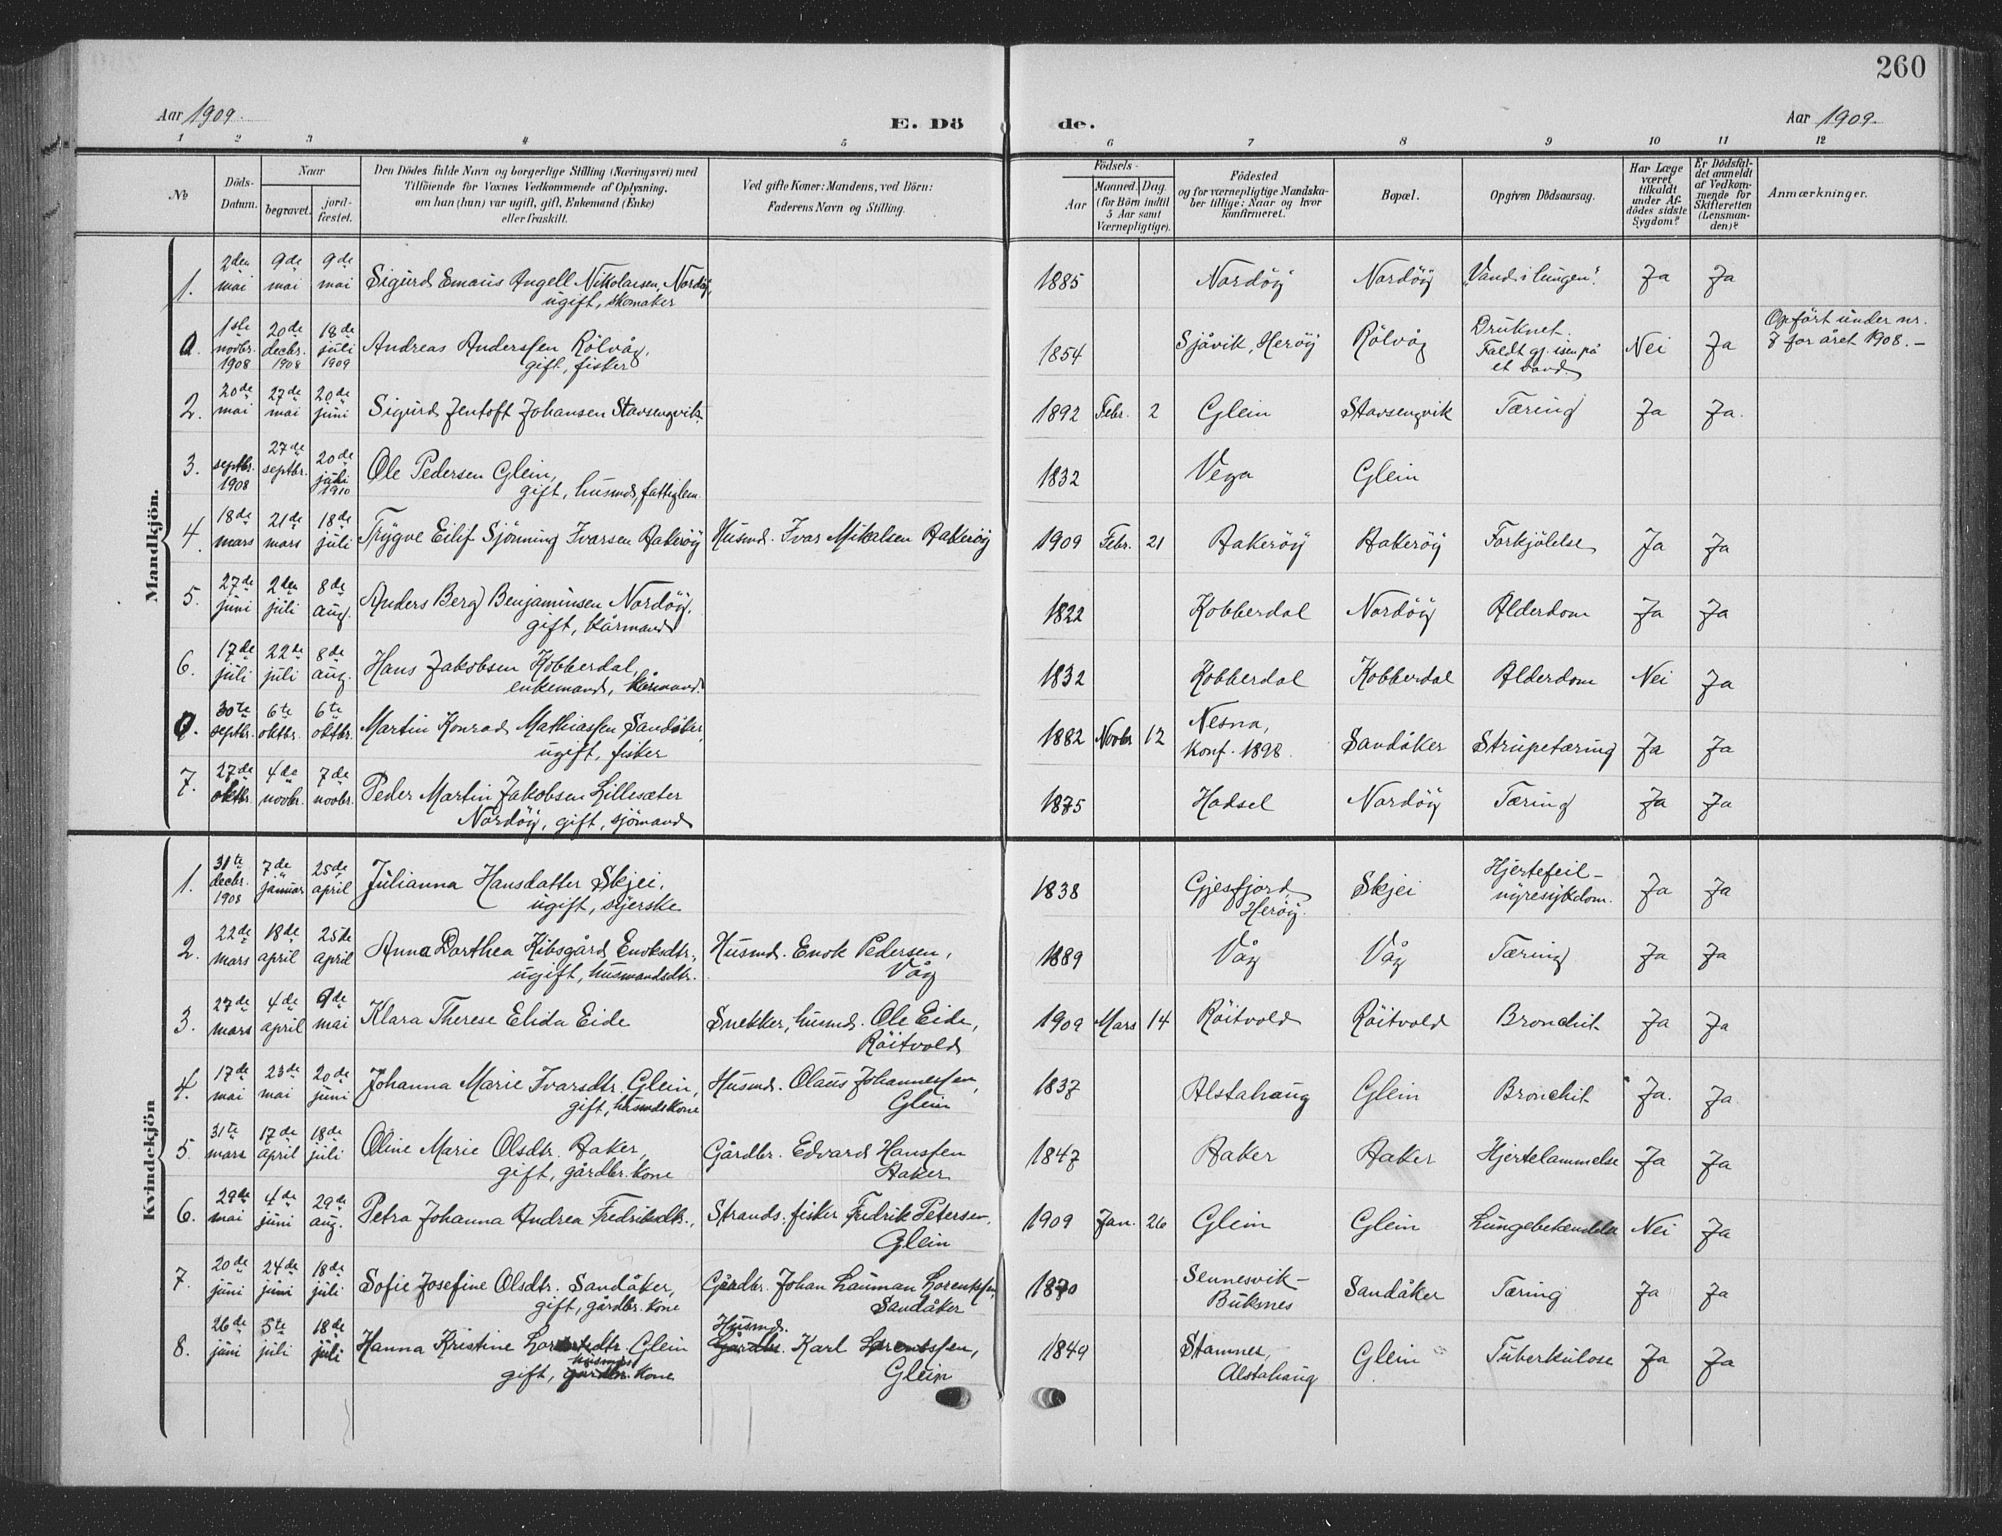 260
Aar 1909.
E. Dö
de.
Aar 1909.
1 2 3 4 5 6 7 8 9 10 11 12
No
Döds-Datum.
Naar
begravet.
jord-fæstet.
Den Dödes fulde Navn og borgerlige Stilling (Næringsvei) med
Tilföiende for Voxnes Vedkommende af Oplysning,
om han (hun) var ugift, gift, Enkemand (Enke)
eller fraskilt.
Ved gifte Koner: Mandens, ved Börn:
Faderens Navn og Stilling.
Födsels-
Aar
Maaned. Dag.
(for Börn indtil
5 Aar samt
Værnepligtige).
Födested
og for værnepligtige Mandska-
ber tillige: Naar og hvor
konfirmeret.
Bopæl.
Opgiven Dödsaarsag.
Har Læge
været
tilkaldt
under Af-
dödes sidste
Sygdom?
Er Dödsfal-
det anmeldt
af Vedkom-
mende for
Skifteretten
(Lensman-
den)?
Anmærkninger.
Mandkjön.
1. 2den mai 9de mai 9de mai Sigurd Emaus Angell Nikolaisen, Nordöy,
ugift, skomaker
1885 Nordöy Nordöy "Vand i lungen". Ja Ja
0. 1ste novbr. 1908 20de decbr. 1908 18de juli 1909 Andreas Anderssen Rölvåg,
gift, fisker
1854 Sjåvik, Heröy Rölvåg Druknet.
Faldt gj. isen på
et vand. Nei Ja Opfört under nr.
8 for året 1908.-
2. 20de mai 27de mai 20de juni Sigurd Jentoft Johansen Stavsengvik.
1892 Febr. 2 Glein Stavsengvik Tæring Ja Ja.
3. septbr. 1908 27de septbr. 20de juli 1910 Ole Pedersen Glein,
gift, husmd, fattiglem.
1832 Vega Glein
4. 18de mars 21de mars 18de juli Trygve Eilif Sjönning Ivarsen Hakeröy Husmd. Ivar Mikalsen Hakeröy
1909 Febr. 21 Hakeröy Hakeröy Forkjölelse Ja Ja
5. 27de juni 2den juli 8de aug. Anders Berg Benjaminsen Nordöy,
gift, kårmand
1822 Kobberdal Nordöy Alderdom Ja Ja
6. 17de juli 22de juli 8de aug. Hans Jakobsen Kobberdal,
enkemand, kårmand
1832 Kobberdal Kobberdal Alderdom Nei Ja
0. 30te septbr. 6te oktbr. 6te oktbr. Martin Konrad Mathiassen Sandåker,
ugift, fisker
1882 Novbr 12 Nesna,
Konf. 1898. Sandåker Strupetæring Ja Ja
7. 27de oktbr. 4de novbr. 7de novbr. Peder Martin Jakobsen Lillesæter
Nordöy, gift, sjömand
1875 Hadsel Nordöy Tæring Ja Ja
Kvindekjön
1. 31te decbr. 1908 7de januar 25de april Julianna Hansdatter Skjei,
ugift, syerske
1838 Gjesfjord
Heröy. Skjei Hjertefeil-
nyresykdom. Ja Ja
2. 22de mars 18de april 25de april Anna Dorthea Kibsgård Enoksdtr.,
ugift, husmandsdtr. Husmd. Enok Pedersen,
Våg
1889 Våg Våg Tæring Ja Ja
3. 27de mars 4de april 9de mai Klara Therese Elida Eide Snekker, husmd. Ole Eide,
Röitvold
1909 Mars 14 Röitvold Röitvold Bronchit Ja Ja
4. 17de mai 23de mai 20de juni Johanna Marie Ivarsdtr. Glein,
gift, husmdskone Husmd. Olaus Johannessen,
Glein
1837 Alstahaug Glein Bronchit Ja. Ja
5. 31te mars 17de april 18de juli Oline Marie Olsdtr. Haker,
gift, gårdbr. kone Gårdbr. Edvard Hanssen
Haker
1847 Haker Haker Hjertelammelse Ja Ja
6. 29de mai 4de juni 29de aug. Petra Johanna Andrea Fredriksdtr., Strands. fisker Fredrik Petersen,
Glein
1909 Jan. 26 Glein Glein Lungebetændelse Nei Ja
7. 20de juni 24de juni 18de juli Sofie Josefine Olsdtr. Sandåker,
gift, gårdbr. kone Gårdbr. Johan Lauman Lorentsen
Sandåker
1870 Sennesvik-
Buksnes Sandåker Tæring Ja Ja
8. 26de juni 5te juli 18de juli Hanna Kristine Glein
gift, husmds gårdbr. kone Husmd.
Gårdbr. Karl Lorentssen,
Glein
1849 Stamnes,
Alstahaug Glein Tuberkulose Ja Ja